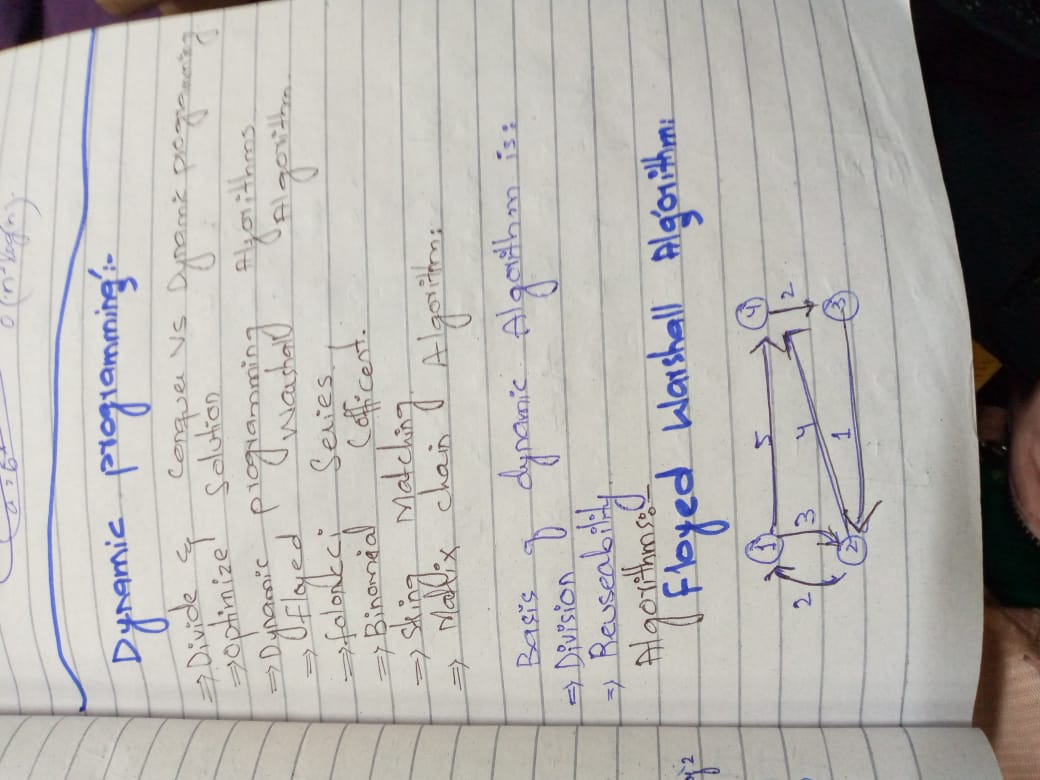 Dynamic programming:-
=> Divide & Conquer vs Dynamic programming
=> Optimize Solution
=> Dynamic programming Algorithms.
=> floyed Washall Algorithm.
=> Series
=> Binomial Cofficent.
=> String Matching
=> Matrix chain Algorithm:
Basis of dynamic Algorithm is:
=> Division
=> Reuseability
Algorithms:-
Floyed Warshall Algorithm:
1 5 4
2 3 4 2
2 1 3